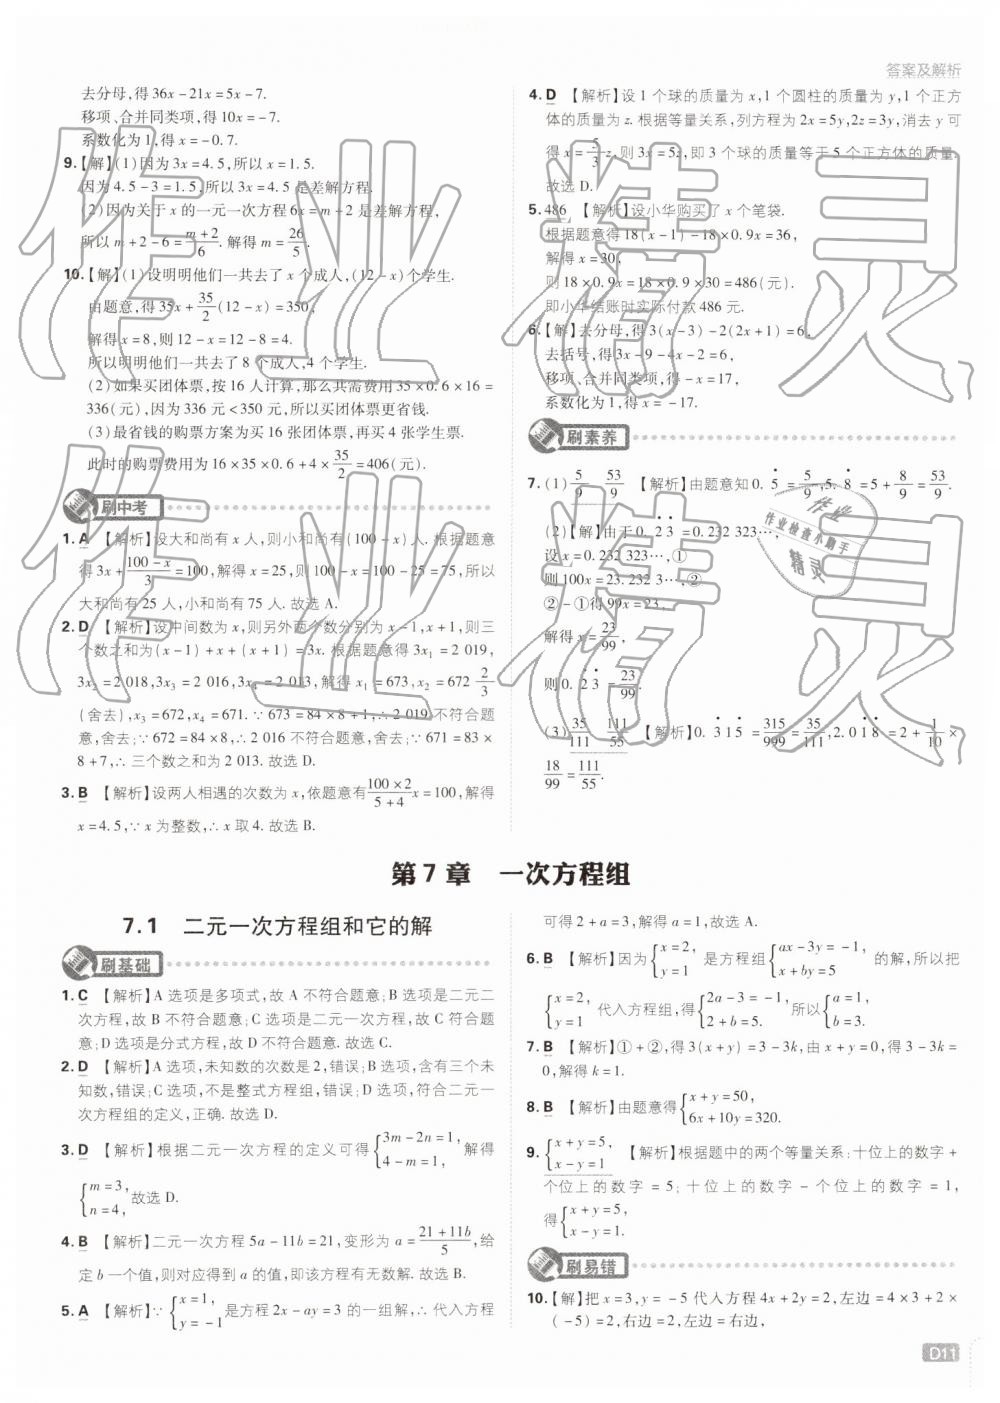 答案及解析
去分母,得36x-21x=5x-7.
移项、合并同类项,得10x=-7.
系数化为1,得x=-0.7.
9.【解】(1)因为3x=4.5,所以x=1.5.
因为4.5-3=1.5,所以3x=4.5是差解方程.
(2)因为关于x的一元一次方程6x=m+2是差解方程,
所以m+2-6=\frac{m+2}{6}.解得m=\frac{26}{5}.
10.【解】(1)设明明他们一共去了x个成人,(12-x)个学生.
由题意,得35x+\frac{35}{2}(12-x)=350,
解得x=8,则12-x=12-8=4.
所以明明他们一共去了8个成人,4个学生.
(2)如果买团体票,按16人计算,那么共需费用35×0.6×16=
336(元),因为336元<350元,所以买团体票更省钱.
(3)最省钱的购票方案为买16张团体票,再买4张学生票.
此时的购票费用为16×35×0.6+4×\frac{35}{2}=406(元).
刷中考
1.A 【解析】设大和尚有x人,则小和尚有(100-x)人.根据题意
得3x+\frac{100-x}{3}=100,解得x=25,则100-x=100-25=75,所以
大和尚有25人,小和尚有75人.故选A.
2.D 【解析】设中间数为x,则另外两个数分别为x-1,x+1,则三
个数之和为(x-1)+x+(x+1)=3x.根据题意得3x₁=2 019,
3x₂=2 018,3x₃=2 016,3x₄=2 013,解得x₁=673,x₂=672\frac{2}{3}
(舍去),x₃=672,x₄=671.∵673=84×8+1,∴2 019不符合题
意,舍去;∵672=84×8,∴2 016不符合题意,舍去;∵671=83×
8+7,∴三个数之和为2 013.故选D.
3.B 【解析】设两人相遇的次数为x,依题意有\frac{100×2}{5+4}x=100,解得
x=4.5,∵x为整数,∴x取4.故选B.
4.D 【解析】设1个球的质量为x,1个圆柱的质量为y,1个正方
体的质量为z.根据等量关系,列方程为2x=5y,2z=3y,消去y可
得x=\frac{5}{3}z,则3x=5z,即3个球的质量等于5个正方体的质量.
故选D.
5.486 【解析】设小华购买了x个笔袋.
根据题意得18(x-1)-18×0.9x=36,
解得x=30.
则18×0.9x=18×0.9×30=486(元).
即小华结账时实际付款486元.
6.【解】去分母,得3(x-3)-2(2x+1)=6,
去括号,得3x-9-4x-2=6,
移项、合并同类项,得-x=17,
系数化为1,得x=-17.
刷素养
7.(1)\frac{5}{9} \frac{53}{9} 【解析】由题意知0.5̇=\frac{5}{9},5.8̇=5+\frac{8}{9}=\frac{53}{9}.
(2)【解】由于0.2̇3̇=0.232 323…,
设x=0.232 323…,①
则100x=23.232 3…,②
②-①得99x=23,
解得x=\frac{23}{99},
则0.2̇3̇=\frac{23}{99}.
(3)\frac{35}{111} \frac{111}{55} 【解析】0.3̇15̇=\frac{315}{999}=\frac{35}{111},2.01̇8̇=2+\frac{1}{10}×
\frac{18}{99}=\frac{111}{55}.
第7章 一次方程组
7.1 二元一次方程组和它的解
刷基础
1.C 【解析】A选项是多项式,故A不符合题意;B选项是二元二
次方程,故B不符合题意;C选项是二元一次方程,故C符合题
意;D选项是分式方程,故D不符合题意.故选C.
2.D 【解析】A选项,未知数的次数是2,错误;B选项,含有三个未
知数,错误;C选项,不是整式方程组,错误;D选项,符合二元一
次方程组的定义,正确.故选D.
3.D 【解析】根据二元一次方程的定义可得{3m-2n=1, 4-m=1, 解得
{m=3, n=4, 故选D.
4.B 【解析】二元一次方程5a-11b=21,变形为a=\frac{21+11b}{5},给
定b一个值,则对应得到a的值,即该方程有无数解.故选B.
5.A 【解析】∵{x=1, y=-1 是方程2x-ay=3的一组解,∴代入方程
可得2+a=3,解得a=1,故选A.
6.B 【解析】因为{x=2, y=1 是方程组{ax-3y=-1, x+by=5 的解,所以把
{x=2, y=1 代入方程组,得{2a-3=-1, 2+b=5. 所以{a=1, b=3.
7.B 【解析】①+②,得3(x+y)=3-3k,由x+y=0,得3-3k=
0,解得k=1.
8.B 【解析】由题意得{x+y=50, 6x+10y=320.
9.{x+y=5, x-y=1 【解析】根据题中的两个等量关系:十位上的数字+
个位上的数字=5;十位上的数字-个位上的数字=1,
得{x+y=5, x-y=1.
刷易错
10.【解】把x=3,y=-5代入方程4x+2y=2,左边=4×3+2×
(-5)=2,右边=2,左边=右边,
D11
作业精灵
作业精灵
作业
作业检查小助手
精灵